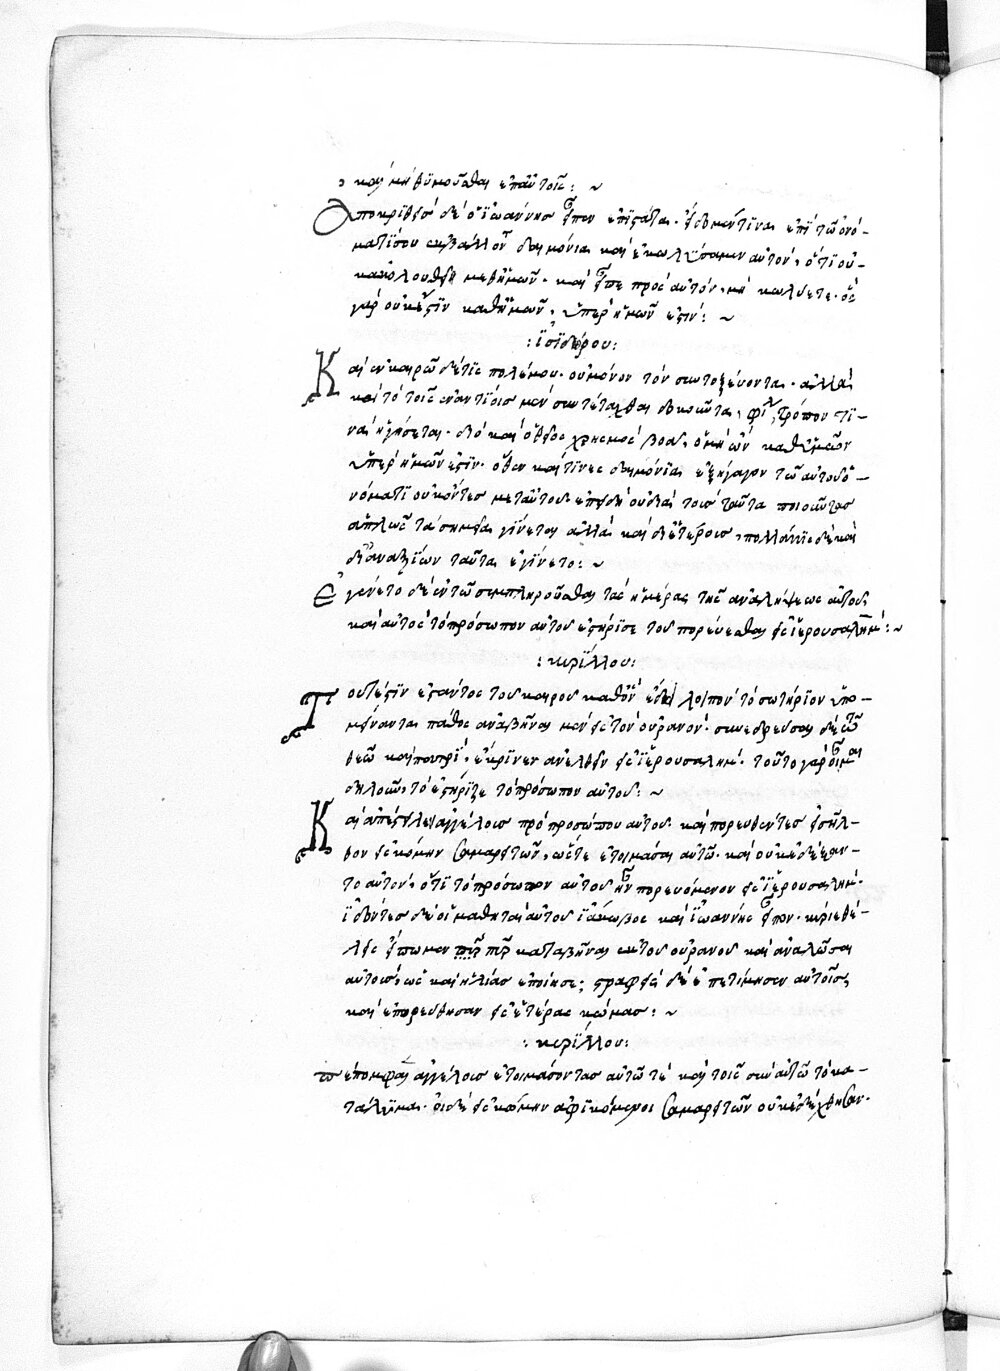 καὶ μὴ θυμοῦσθαι ἐπ' αὐτοῖς: ~
Ἀποκριθεὶς δὲ ὁ ἰωάννης εἶπεν ἐπιστάτα· εἴδομέν τινα ἐπὶ τῶ ὀνό-
ματί σου ἐκβάλλοντα δαιμόνια καὶ ἐκωλύσαμεν αὐτὸν, ὅτι οὐ-
κ ἀκολουθεῖ μεθ' ἡμῶν· καὶ εἶπε πρὸς αὐτὸν, μὴ κωλύετε· ὃς
γὰρ οὐκ ἔστιν καθ' ἡμῶν, ὑπὲρ ἡμῶν ἐστιν: ~
:ἰσιδώρου:
Καὶ ἐν καιρῶ δέ τις πολέμου· οὐ μόνον τὸν συντοξεύοντα· ἀλλὰ
καὶ τὸ τοῖς ἐναντίοις μὲν συντετάχθαι δοκοῦντα, φίλον τρόπον τι-
νὰ ἡγήσεται· διὸ καὶ ὁ θεῖος χρησμὸς βοᾶ, ὁ μὴ ὢν καθ' ἡμῶν
ὑπὲρ ἡμῶν ἐστιν· ὅθεν καί τινες δαιμόνια ἐξήγαγον τῶ αὐτοῦ ὀ-
νόματι οὐκ ὄντες μετ' αὐτοῦ ἐπειδὴ οὐ διὰ τοὺς ταῦτα ποιοῦντας
ἁπλῶς τὰ σημεῖα γίνεται ἀλλὰ καὶ δι' ἑτέρους, πολλάκις δὲ καὶ
δι' ἀναξίων ταῦτα ἐγίνετο: ~
Ἐγένετο δὲ ἐν τῶ συμπληροῦσθαι τὰς ἡμέρας τῆς ἀναλήψεως αὐτοῦ,
καὶ αὐτὸς τὸ πρόσωπον αὐτοῦ ἐστήριξε τοῦ πορεύεσθαι εἰς ἱερουσαλήμ: ~
:κυρίλλου:
Τουτέστιν ἐνστάντος τοῦ καιροῦ καθ' ὃν ἔδει λοιπὸν τὸ σωτήριον ὑπο-
μείναντα πάθος ἀναβῆναι μὲν εἰς τὸν οὐρανόν· συνεδρεῦσαι δὲ τῶ
θεῶ καὶ πατρὶ, ἔκρινεν ἀνελθεῖν εἰς ἱερουσαλήμ· τοῦτο γὰρ οἶμαι
δηλοῦν, τὸ ἐστήριξε τὸ πρόσωπον αὐτοῦ: ~
Καὶ ἀπέστειλεν ἀγγέλους πρὸ προσώπου αὐτοῦ· καὶ πορευθέντες εἰσῆλ-
θον εἰς κώμην σαμαρειτῶν, ὥστε ἑτοιμάσαι αὐτῶ· καὶ οὐκ ἐδέξαν-
το αὐτὸν, ὅτι τὸ πρόσωπον αὐτοῦ ἦν πορευόμενον εἰς ἱερουσαλήμ·
ἰδόντες δὲ οἱ μαθηταὶ αὐτοῦ ἰάκωβος καὶ ἰωάννης εἶπον· κύριε θέ-
λεις εἴπωμεν πῦρ πῦρ καταβῆναι ἐκ τοῦ οὐρανοῦ καὶ ἀναλῶσαι
αὐτοὺς, ὡς καὶ ἡλίας ἐποίησε; στραφεὶς δὲ ἐπετίμησεν αὐτοῖς,
καὶ ἐπορεύθησαν εἰς ἑτέρας κώμας: ~
:κυρίλλου:
πέπομφεν ἀγγέλους ἑτοιμάσοντας αὐτῶ τὲ καὶ τοῖς σὺν αὐτῶ τὸ κα-
τάλυμα· οἱ δὲ εἰς κώμην ἀφικόμενοι σαμαρειτῶν οὐκ ἐδέχθησαν·